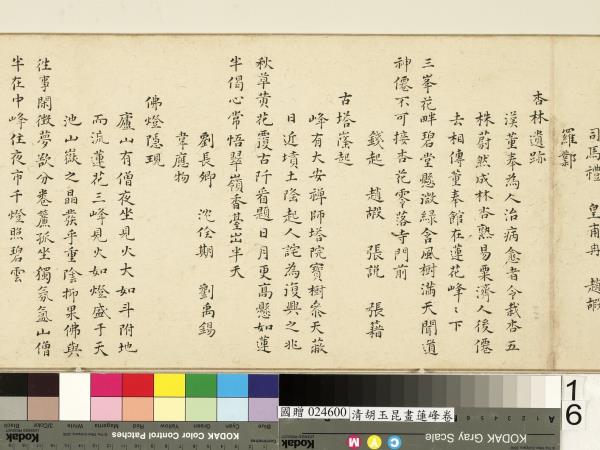 司馬禮 皇甫冉 趙嘏
羅鄴
杏林遺跡
漢董奉為人治病愈者令栽杏五
株蔚然成林杏熟易粟濟人後僊
去相傳董奉館在蓮花峰〻下
三峯花畔碧堂懸漱綠含風樹滿天聞道
神僊不可接杏花零落寺門前
錢起 趙嘏 張說 張籍
古塔蔭起
峰有大安禪師塔院寶樹參天蔽
日近墳土陰起人詫為復興之兆
秋草黃花覆古阡看題日月更高懸如蓮
半偈心常悟翠嶺香臺出半天
劉長卿 沈佺期 劉禹錫
韋應物
佛燈隱現
廬山有僧夜坐見火大如斗附地
而流蓮花三峰見火如燈盛于天
池山嶽之晶發乎重陰抑果佛與
往事閑徵夢欲分卷簾孤坐獨氛氳山僧
半在中峰住夜市千燈照碧雲
16
國贈 024600 清胡玉昆畫蓮峰卷
Kodak
KODAK Color Control Patches
Black
3/Color
White
Magenta
Red
Yellow
Green
Cyan
Blue
KODAK Gray Scale
Kodak
C Y M
A